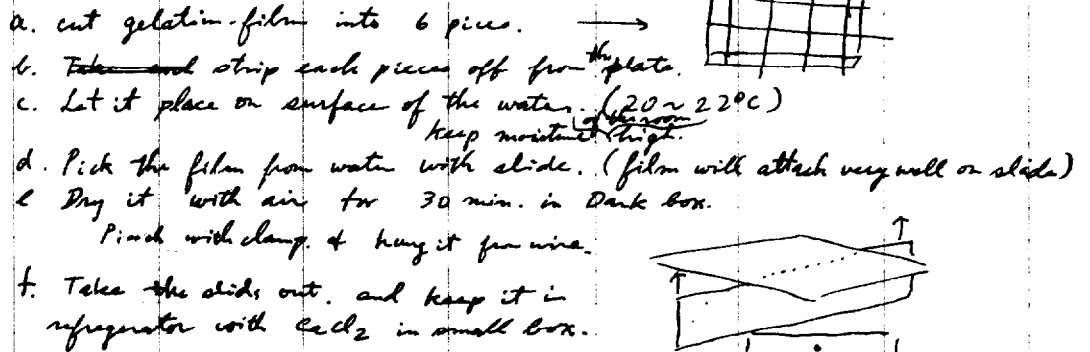 a. cut gelatin-film into 6 pices. →
b. Take and strip each pieces off from the plate.
c. Let it place on surface of the water. (20~22°C)
keep moisture (of the room) high.
d. Pick the film from water with slide. (film will attach very well on slide)
e Dry it with air for 30 min. in Dark box.
Pinch with clamp. & hang it from wire.
f. Take the slide out. and keep it in
refrigerator with CaCl2 in small box.